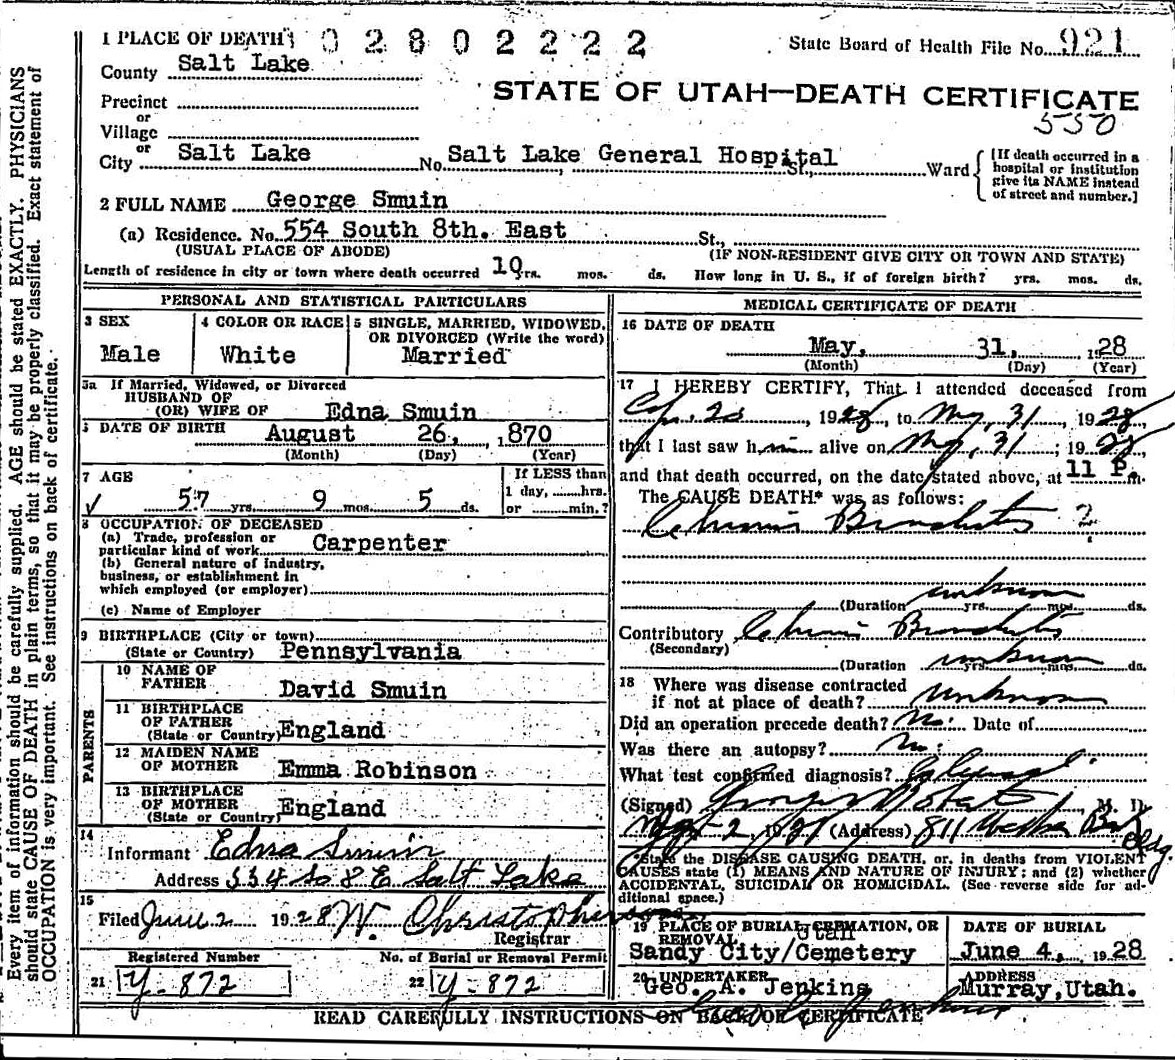 1 PLACE OF DEATH 02802222
State Board of Health File No. 921
County Salt Lake
STATE OF UTAH—DEATH CERTIFICATE
Precinct
or
550
Village
or
City Salt Lake No. Salt Lake General Hospital St., Ward
[If death occurred in a
hospital or institution
give its NAME instead
of street and number.]
2 FULL NAME George Smuin
(a) Residence. No. 554 South 8th. East St.,
(USUAL PLACE OF ABODE) (IF NON-RESIDENT GIVE CITY OR TOWN AND STATE)
Length of residence in city or town where death occurred 10 yrs. mos. ds. How long in U. S., if of foreign birth? yrs. mos. ds.
PERSONAL AND STATISTICAL PARTICULARS
3 SEX 4 COLOR OR RACE 5 SINGLE, MARRIED, WIDOWED,
OR DIVORCED (Write the word)
Male White Married
5a If Married, Widowed, or Divorced
HUSBAND OF
(OR) WIFE OF Edna Smuin
DATE OF BIRTH August 26, 1870
(Month) (Day) (Year)
7 AGE If LESS than
1 day, hrs.
57 yrs. 9 mos. 5 ds. or min.?
8 OCCUPATION OF DECEASED
(a) Trade, profession or
particular kind of work Carpenter
(b) General nature of industry,
business, or establishment in
which employed (or employer)
(c) Name of Employer
9 BIRTHPLACE (City or town)
(State or Country) Pennsylvania
PARENTS
10 NAME OF
FATHER David Smuin
11 BIRTHPLACE
OF FATHER
(State or Country) England
12 MAIDEN NAME
OF MOTHER Emma Robinson
13 BIRTHPLACE
OF MOTHER
(State or Country) England
14
Informant Edna Smuin
Address 554 So 8 E Salt Lake
15
Filed June 2 1928 W. Christopherson
Registrar
Registered Number No. of Burial or Removal Permit
21 Y-872 22 Y-872
MEDICAL CERTIFICATE OF DEATH
16 DATE OF DEATH
May, 31, 1928
(Month) (Day) (Year)
17 I HEREBY CERTIFY, That I attended deceased from
1928, to May, 31 1928
that I last saw him alive on May, 31; 1928
and that death occurred, on the date stated above, at 11 P. m.
The CAUSE DEATH* was as follows:
Chronic Bronchitis ?
unknown
(Duration yrs. mos. ds.
Contributory Chronic Bronchitis
(Secondary)
(Duration unknown yrs. mos. ds.
18 Where was disease contracted
if not at place of death? unknown
Did an operation precede death? No. Date of
Was there an autopsy? No.
What test confirmed diagnosis?
(Signed) M. D.
(Address) 811 Bldg.
*State the DISEASE CAUSING DEATH, or, in deaths from VIOLENT
CAUSES state (1) MEANS AND NATURE OF INJURY; and (2) whether
ACCIDENTAL, SUICIDAL OR HOMICIDAL. (See reverse side for ad-
ditional space.)
19 PLACE OF BURIAL, CREMATION, OR
REMOVAL Utah
Sandy City/Cemetery
DATE OF BURIAL
June 4, 1928
20 UNDERTAKER
Geo. A. Jenkins
ADDRESS
Murray, Utah.
READ CAREFULLY INSTRUCTIONS ON BACK OF CERTIFICATE
Every item of information should be carefully supplied. AGE should be stated EXACTLY. PHYSICIANS
should state CAUSE OF DEATH in plain terms, so that it may be properly classified. Exact statement of
OCCUPATION is very important. See instructions on back of certificate.